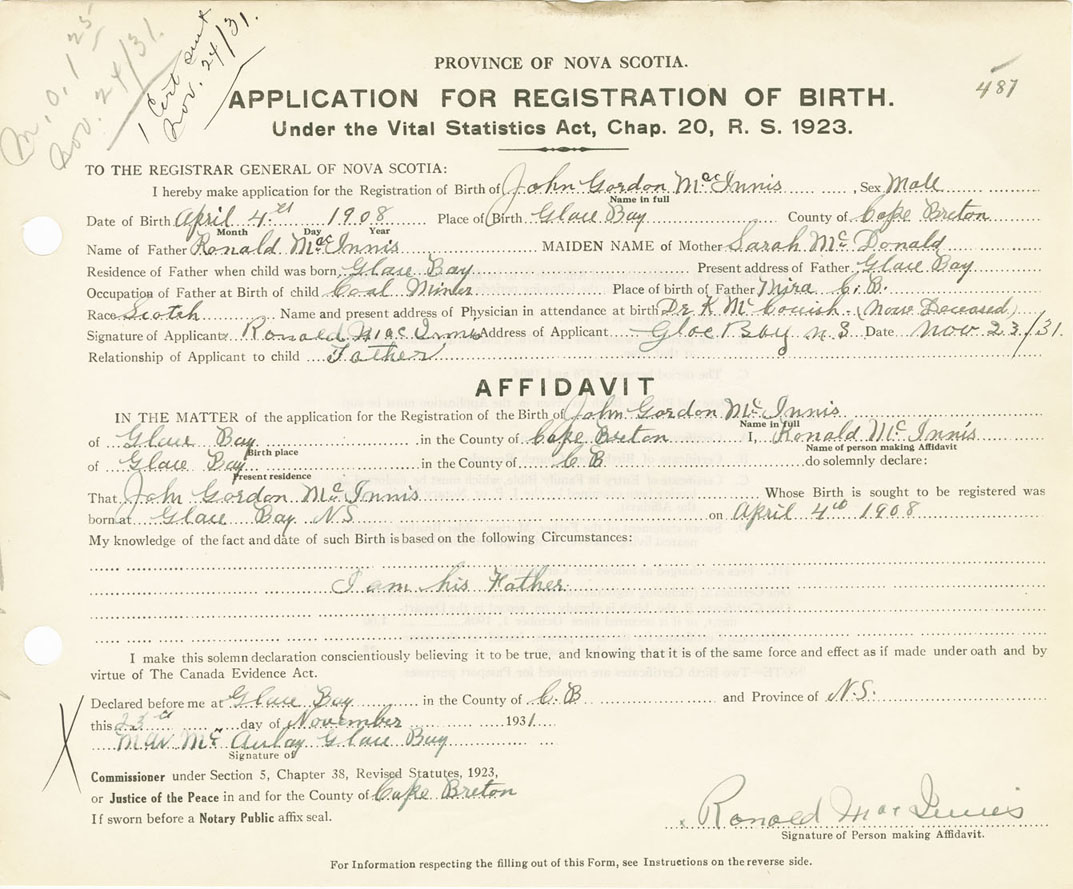 M.O. 1 25
Nov. 24/31.
1 Cert sent
Nov. 24/31.
487
PROVINCE OF NOVA SCOTIA.
APPLICATION FOR REGISTRATION OF BIRTH.
Under the Vital Statistics Act, Chap. 20, R. S. 1923.
TO THE REGISTRAR GENERAL OF NOVA SCOTIA:
I hereby make application for the Registration of Birth of John Gordon McInnis, Sex Male
Name in full
Date of Birth April 4th 1908 Place of Birth Glace Bay County of Cape Breton
Month Day Year
Name of Father Ronald MacInnis MAIDEN NAME of Mother Sarah McDonald
Residence of Father when child was born, Glace Bay Present address of Father Glace Bay
Occupation of Father at Birth of child Coal Miner Place of birth of Father Mira C.B.
Race Scotch Name and present address of Physician in attendance at birth Dr K McCouish. (Now Deceased)
Signature of Applicant Ronald MacInnis Address of Applicant Glace Bay N.S Date Nov 23/31.
Relationship of Applicant to child Father
AFFIDAVIT
IN THE MATTER of the application for the Registration of the Birth of John Gordon McInnis
Name in full
of Glace Bay in the County of Cape Breton I, Ronald McInnis
Birth place Name of person making Affidavit
of Glace Bay in the County of C B do solemnly declare:
Present residence
That John Gordon McInnis Whose Birth is sought to be registered was
born at Glace Bay NS on April 4th 1908
My knowledge of the fact and date of such Birth is based on the following Circumstances:
I am his Father
I make this solemn declaration conscientiously believing it to be true, and knowing that it is of the same force and effect as if made under oath and by
virtue of The Canada Evidence Act.
Declared before me at Glace Bay in the County of C.B and Province of N.S.
this 23rd day of November 1931
McAulay Glace Bay
Signature of
Commissioner under Section 5, Chapter 38, Revised Statutes, 1923,
or Justice of the Peace in and for the County of Cape Breton
If sworn before a Notary Public affix seal.
Ronald MacInnis
Signature of Person making Affidavit.
For Information respecting the filling out of this Form, see Instructions on the reverse side.